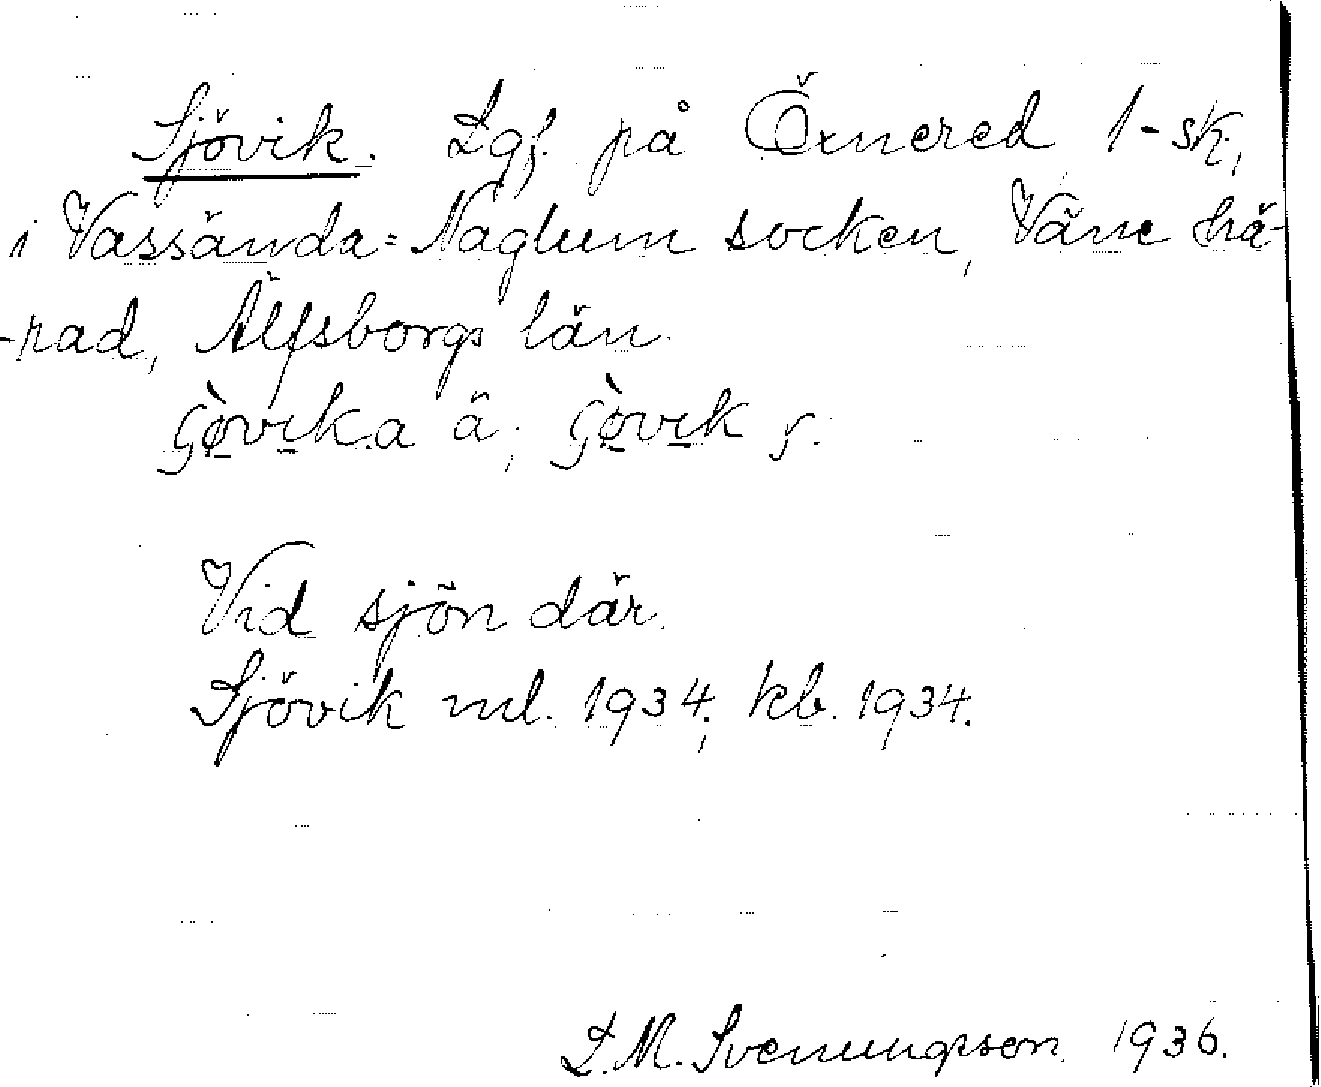 Sjövik. Lgf. på Öxnered 1-sk,
i Vassända=Naglum socken, Väne hä-
-rad, Älfsborgs län.
ʃòvika ä, ʃòvik
Vid sjön där.
Sjövik ml. 1934; kb. 1934.
L. M. Svenungsson 1936.